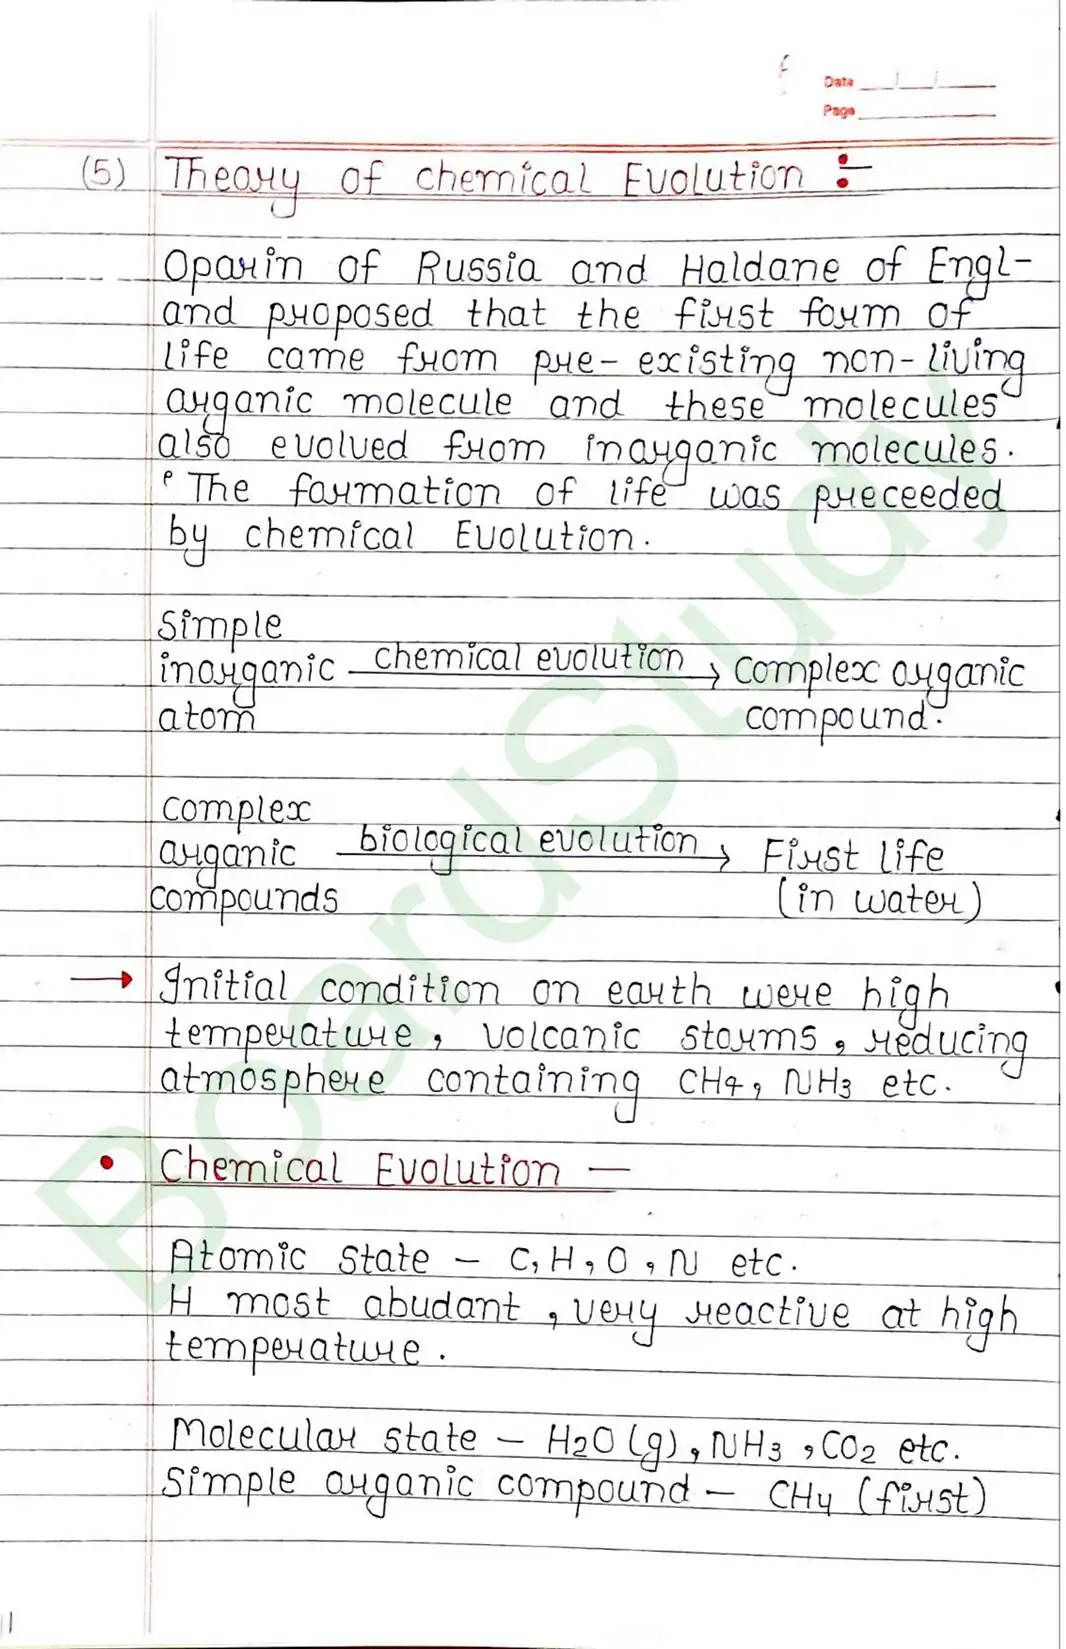 Date __/__/__
Page
(5) Theory of chemical Evolution :-
Oparin of Russia and Haldane of Engl-
and proposed that the first form of
life came from pre-existing non-living
organic molecule and these molecules
also evolved from inorganic molecules.
The formation of life was preceeded
by chemical Evolution.
Simple
inorganic chemical evolution → Complex organic
atom compound.
complex
organic biological evolution → First life
compounds (in water)
→ Initial condition on earth were high
temperature, volcanic storms, reducing
atmosphere containing CH4, NH3 etc.
• Chemical Evolution —
Atomic state - C, H, O, N etc.
H most abudant, very reactive at high
temperature.
Molecular state - H2O (g), NH3, CO2 etc.
Simple organic compound - CH4 (first)
BoardStudy